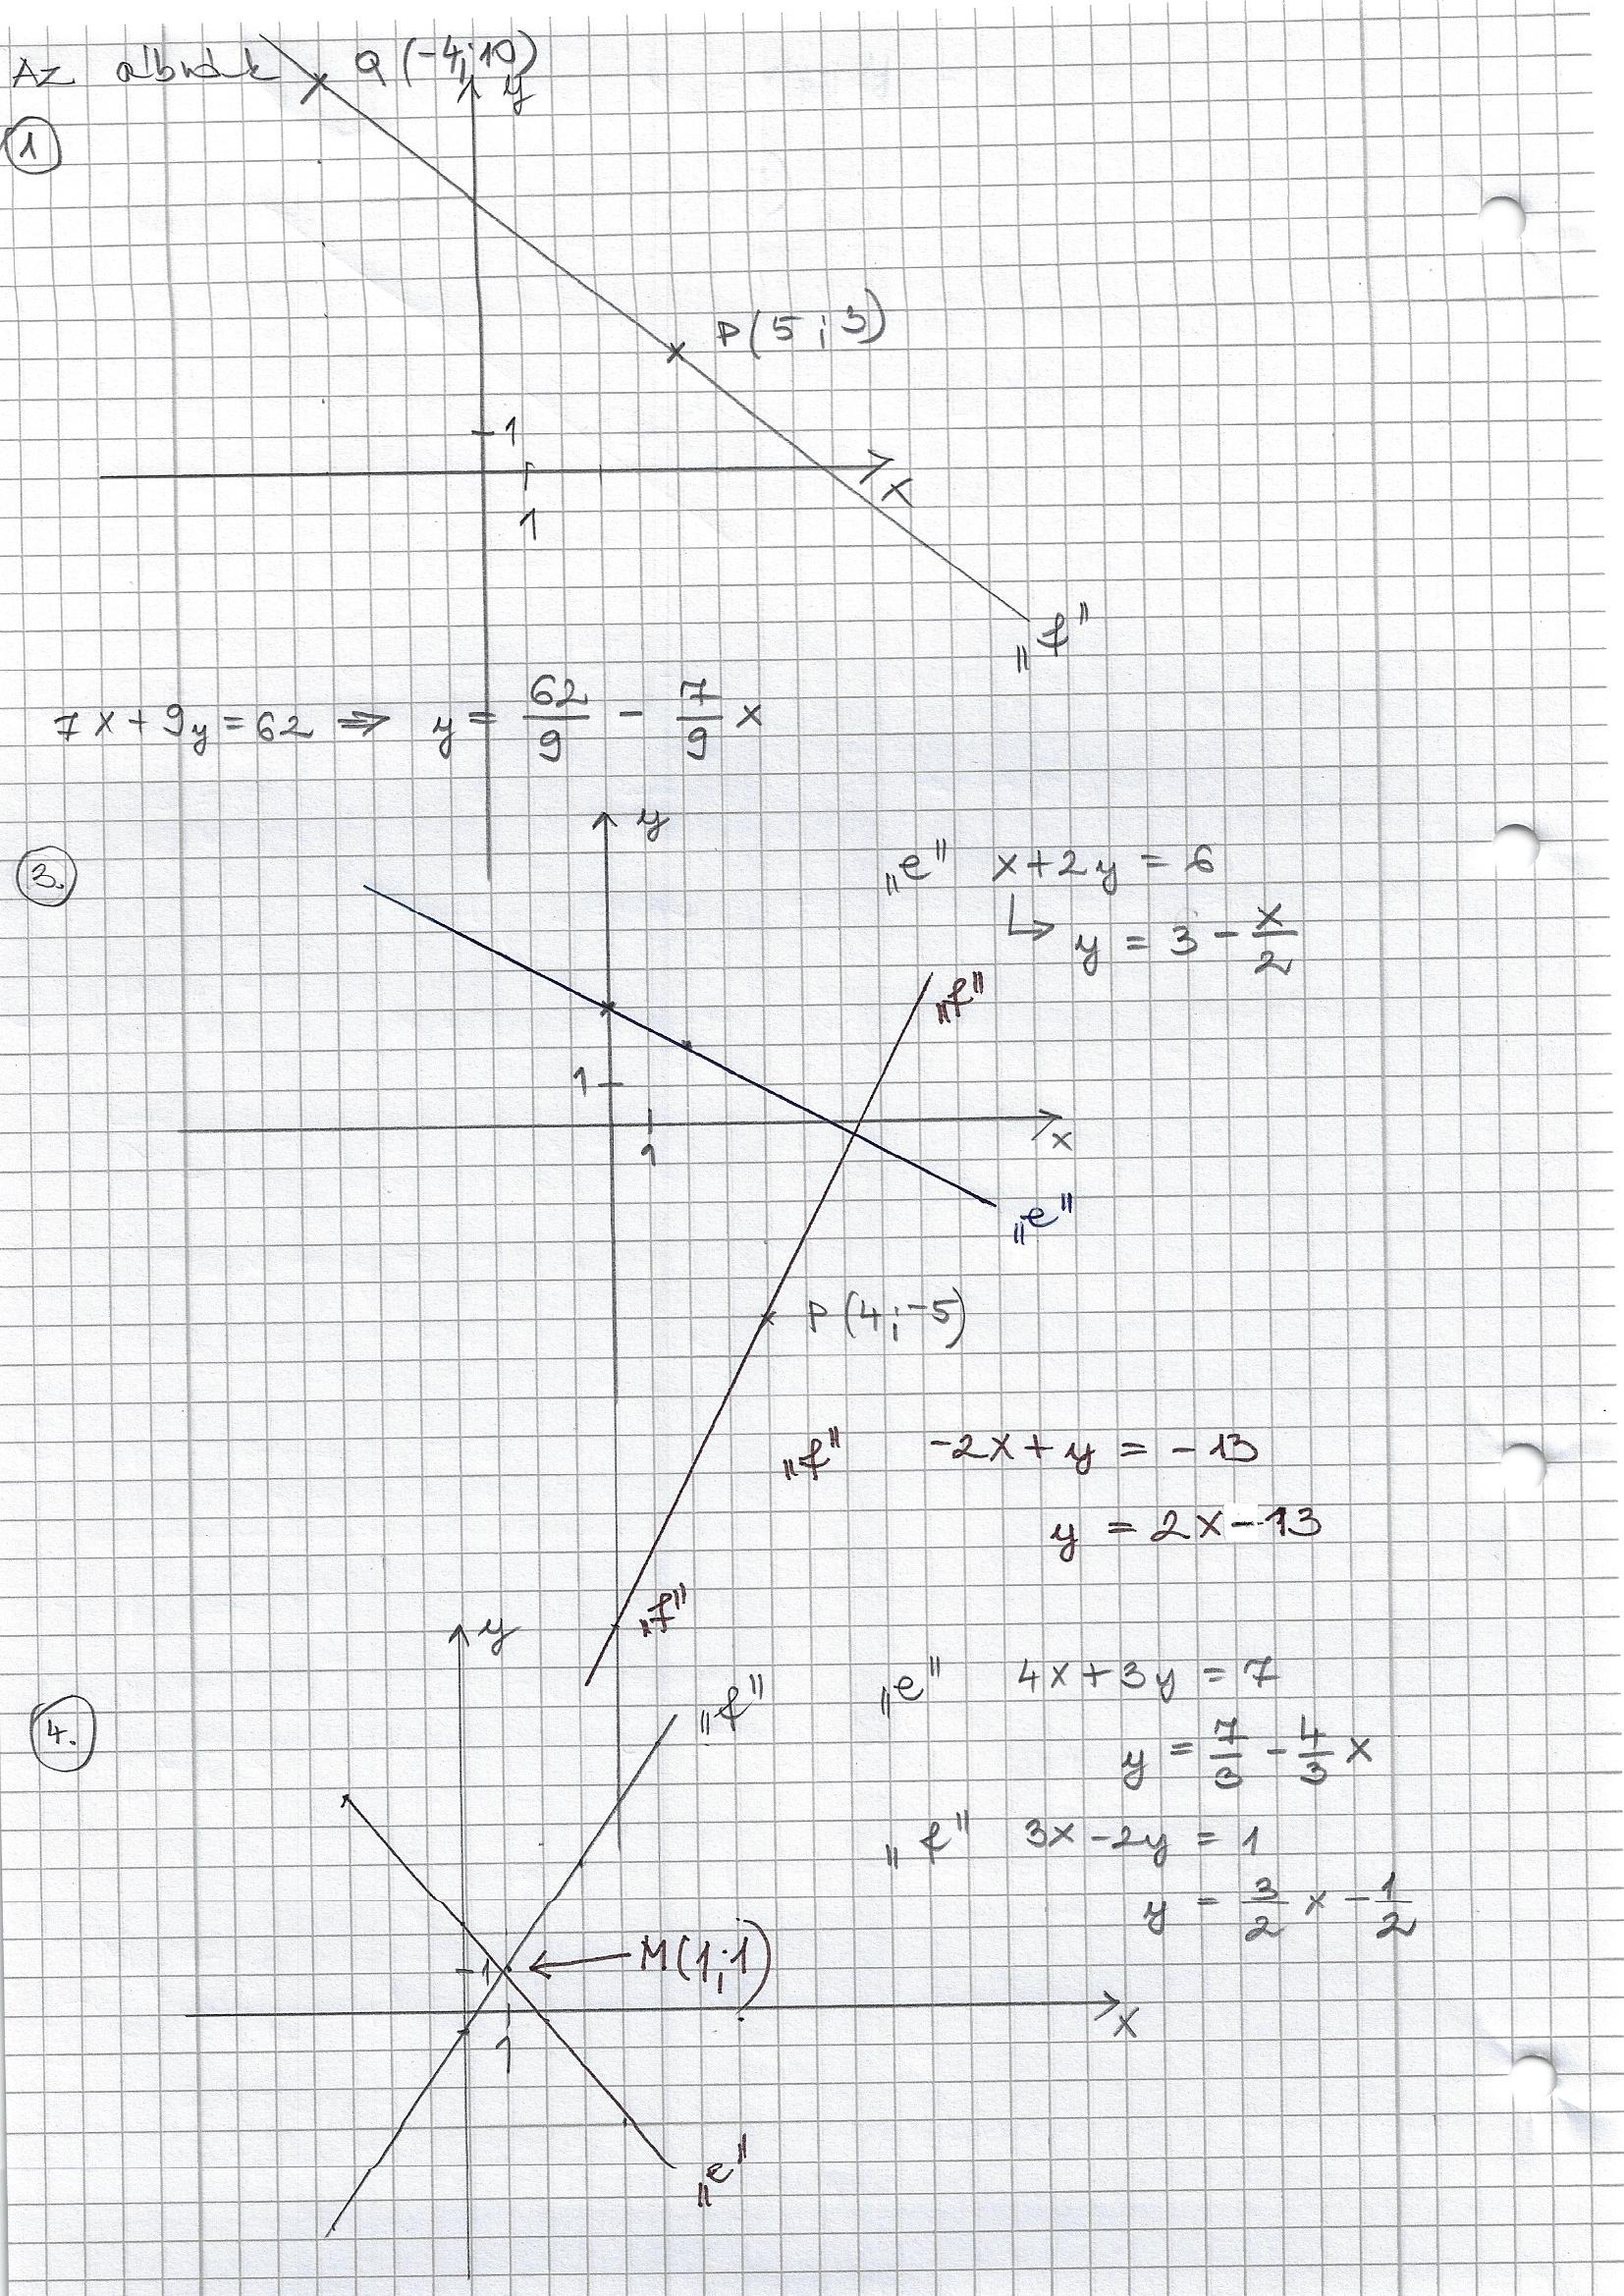 Az ábrák Q(-4;10)
y
1
P(5;3)
1
x
1
„f"
7x+9y=62 ⇒ y = 62/9 - 7/9 x
y
3. „e" x+2y = 6
↳ y = 3 - x/2
„f"
1
x
1
„e"
P(4;-5)
„f" -2x+y = -13
y = 2x-13
„f"
y
„e" 4x+3y = 7
„f"
4. y = 7/3 - 4/3 x
„f" 3x-2y = 1
y = 3/2 x - 1/2
1 ← M(1;1)
x
1
„e"